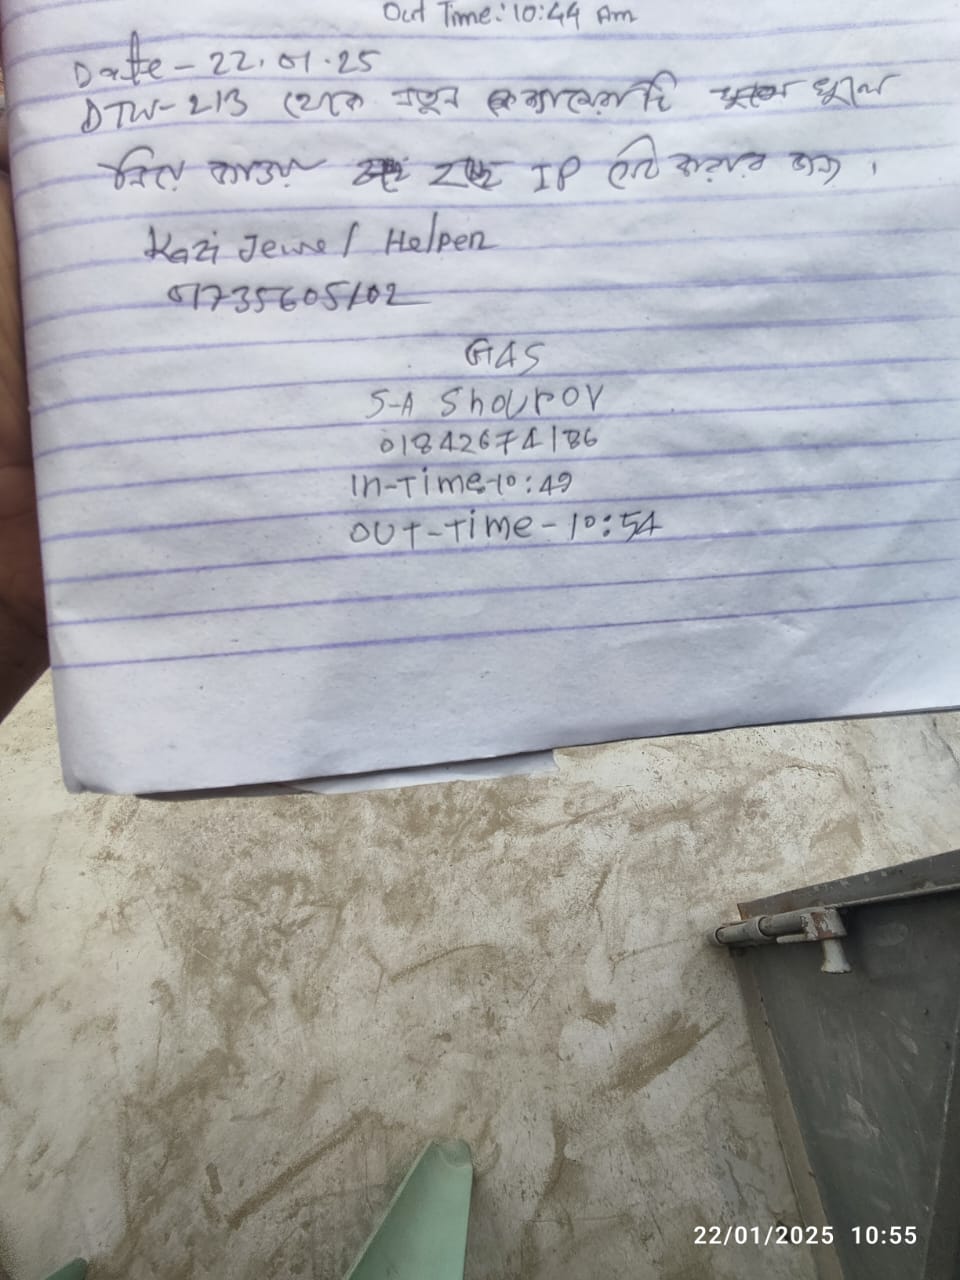 Out Time: 10:44 Am
Date - 22.01.25
DTW-213 থেকে নতুন ক্যামেরাটি খুলে
নিয়ে যাওয়া হচ্ছে IP সেট করার জন্য।
Kazi Jewel Helper
01735605102
GAS
S-A Shourov
01842674186
In-Time-10:49
OUT-Time-10:54
22/01/2025 10:55